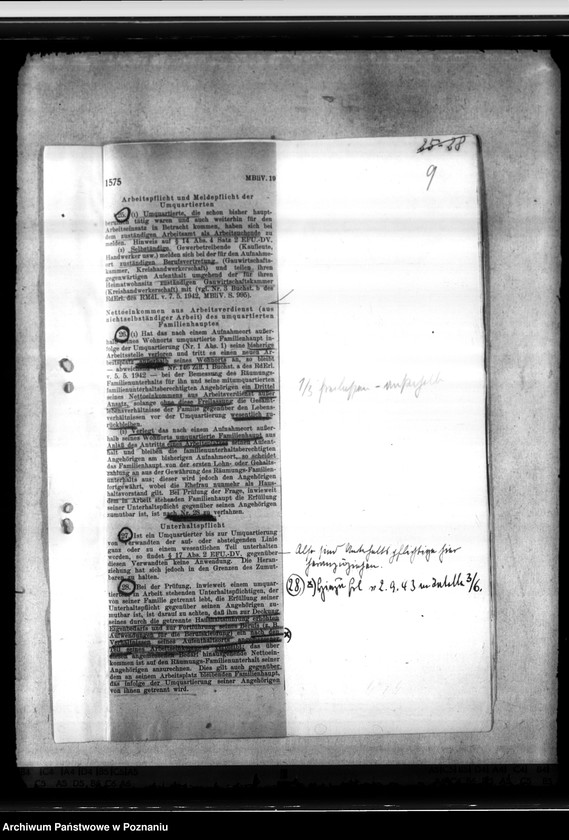 25-28
9
1575 MBliV. 19
Arbeitspflicht und Meldepflicht der
Umquartierten
(1) Umquartierte, die schon bisher haupt-
tätig waren und auch weiterhin für den
Arbeitseinsatz in Betracht kommen, haben sich bei
dem zuständigen Arbeitsamt als Arbeitsuchende zu
melden. Hinweis auf § 14 Abs. 4 Satz 2 EFU.-DV.
(2) Selbständige, Gewerbetreibende (Kaufleute,
Handwerker usw.) melden sich bei der für den Aufnahme-
ort zuständigen Berufsvertretung (Gauwirtschafts-
kammer, Kreishandwerkerschaft) und teilen ihren
gegenwärtigen Aufenthalt umgehend der für ihren
Heimatwohnsitz zuständigen Gauwirtschaftskammer
(Kreishandwerkerschaft) mit (vgl. Nr. 3 Buchst. b des
RdErl. des RMdI. v. 7. 5. 1942, MBliV. S. 995).
Nettoeinkommen aus Arbeitsverdienst (aus
nichtselbständiger Arbeit) des umquartierten
Familienhauptes
26. (1) Hat das nach einem Aufnahmeort außer-
halb seines Wohnorts umquartierte Familienhaupt in-
folge der Umquartierung (Nr. 1 Abs. 1) seine bisherige
Arbeitsstelle verloren und tritt es einen neuen Ar-
beitsplatz seines Wohnorts an, so bleibt
— Nr. 140 Ziff. 1 Buchst. a des RdErl.
v. 5. 5. 1942 — bei der Bemessung des Räumungs-
Familienunterhalts für ihn und seine mitumquartierten
familienunterhaltsberechtigten Angehörigen ein Drittel
seines Nettoeinkommens aus Arbeitsverdienst außer
Ansatz, solange ohne diese Freilassung die Gesamt-
lebensverhältnisse der Familie gegenüber den Lebens-
verhältnissen vor der Umquartierung wesentlich zu-
rückbleiben.
(2) Verlegt das nach einem Aufnahmeort außer-
halb seines Wohnorts umquartierte Familienhaupt aus
Anlaß des Antritts seinen Aufent-
halt und bleiben die familienunterhaltsberechtigten
Angehörigen am bisherigen Aufnahmeort, so scheidet
das Familienhaupt von der ersten Lohn- oder Gehalts-
zahlung an aus der Gewährung des Räumungs-Familien-
unterhalts aus; dieser wird jedoch den Angehörigen
fortgewährt, wobei die Ehefrau nunmehr als Haus-
haltsvorstand gilt. Bei Prüfung der Frage, inwieweit
dem in Arbeit stehenden Familienhaupt die Erfüllung
seiner Unterhaltspflicht gegenüber seinen Angehörigen
zumutbar ist, ist nach Nr. 28 zu verfahren.
Unterhaltspflicht
27. Ist ein Umquartierter bis zur Umquartierung
von Verwandten der auf- oder absteigenden Linie
ganz oder zu einem wesentlichen Teil unterhalten
worden, so findet § 17 Abs. 2 EFU.-DV. gegenüber
diesen Verwandten keine Anwendung. Die Heran-
ziehung hat sich jedoch in den Grenzen des Zumut-
baren zu halten.
28. Bei der Prüfung, inwieweit einem umquar-
tierten in Arbeit stehenden Unterhaltspflichtigen, der
von seiner Familie getrennt lebt, die Erfüllung seiner
Unterhaltspflicht gegenüber seinen Angehörigen zu-
mutbar ist, ist darauf zu achten, daß ihm zur Deckung
seines durch die getrennte Haushaltsführung erhöhten
Eigenbedarfs und zur Fortführung seines Berufs (z. B.
Aufwendungen für die Berufskleidung) ein nach den
Verhältnissen seines Aufenthaltsorts
das über
hinausgehende Nettoein-
kommen ist auf den Räumungs-Familienunterhalt seiner
Angehörigen anzurechnen. Dies gilt auch gegenüber
dem an seinem Arbeitsplatz bleibenden Familienhaupt,
das infolge der Umquartierung seiner Angehörigen
von ihnen getrennt wird.
1/3
Also sind Unterhaltspflichtige hier
heranzuziehen.
28.) v 2.9.43 3/6.
Archiwum Państwowe w Poznaniu